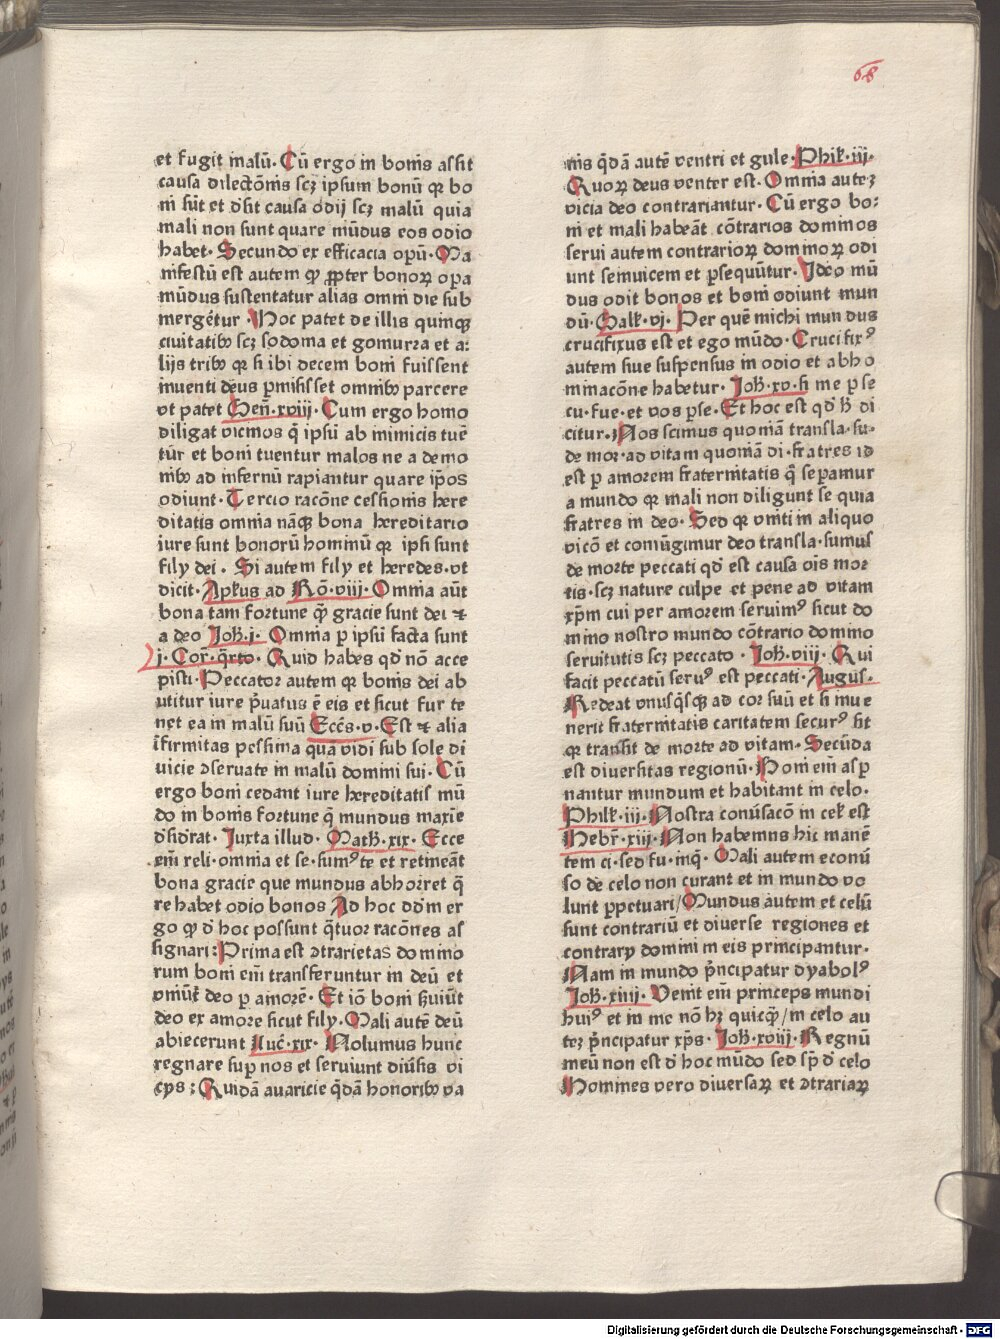 68
et fugit malū. Cū ergo in bonis assit
causa dilectōnis scꝫ ipsum bonū qꝛ bo
ni sūt et dʼsit causa odij scꝫ malū quia
mali non sunt quare mūdus eos odio
habet. Secundo ex efficacia opū. Ma
nifestū est autem ꝙ ꝓpter bonoꝝ opa
mūdus sustentatur alias omni die sub
mergētur. Hoc patet de illis quinqꝫ
ciuitatibꝰ scꝫ sodoma et gomurra et a⸗
lijs tribꝰ qꝛ si ibi decem boni fuissent
inuenti deus pmisisset omnibꝰ parcere
vt patet Gen̄. xviij. Cum ergo homo
diligat vicinos q̄ ipsū ab inimicis tuē
tūr et boni tuentur malos ne a demo
nibꝰ ad infernū rapiantur quare ip̄os
odiunt. Tercio racōne cessionis here
ditatis omnia nāqꝫ bona hereditario
iure sunt bonorū hominū qꝛ ipsi sunt
filij dei. Si autem filij et heredes. vt
dicit. Aplꝰus ad Rō. viij. Omnia aūt
bona tam fortune ꝙ̄ gracie sunt dei ⁊
a deo Joh̄. j. Omnia p ipsū facta sunt
j. Cor̄. q̄rto. Quid habes qd̓ nō acce
pisti. Peccator autem qꝛ bonis dei ab
utitur iure p̄uatus ē eis et sicut fur te
net ea in malū suū Eccēs. v. Est ⁊ alia
īfirmitas pessima quā vidi sub sole di
uicie ꝯseruate in malū domini sui. Cū
ergo boni cedant iure hereditatis mū
do in bonis fortune q̄ mundus maxīe
dʼsidʼrat. Iuxta illud. Math̄. xix. Ecce
em̄ reli. omnia et se. sumꝰ te et retineāt
bona gracie que mundus abhorret q̄
re habet odio bonos Ad hoc dd̓m er
go ꝙ dʼ hoc possunt q̄tuor racōnes as
signari: Prima est ꝯtrarietas domino
rum boni em̄ transferuntur in deū et
vniūt̄ deo p amorē. Et iō boni ẜuiūt
deo ex amore sicut filij. Mali autē deū
abiecerunt Luc̄. xix. Nolumus hunc
regnare sup nos et seruiunt diūsis vi
cijs: Quidā auaricie q̄dā honoribꝰ va
nis q̄dā autē ventri et gule. Phil̓. iij.
Quoꝝ deus venter est. Omnia auteꝫ
vicia deo contrariantur. Cū ergo bo⸗
ni et mali habeāt cōtrarios dominos
serui autem contrarioꝝ dominoꝝ odi
unt seinuicem et psequūtur. Ideo mū
dus odit bonos et boni odiunt mun
dū. Gall̓. vj. Per quē michi mundus
crucifixus est et ego mūdo. Crucifixꝰ
autem siue suspensus in odio et abho
minacōne habetur. Joh̄. xv. si me pse
cu. fue. et vos pse. Et hoc est qd̓ h̄ di
citur. Nos scimus quoniā transla. su⸗
de mor. ad vitam quoniā di. fratres id
est p amorem fraternitatis q̄ sepamur
a mundo qꝛ mali non diligunt se quia
fratres in deo. Sed qꝛ vniti in aliquo
vico̅ et coniūgimur deo transla. sumus
de morte peccati qd̓ est causa oīs mor
tis. scꝫ nature culpe et pene ad vitam
xp̄m cui per amorem seruimꝰ sicut do
mino nostro mundo cōtrario domino
seruitutis scꝫ peccato. Joh̄. viij. Qui
facit peccatū seruꝰ est peccati. Augus̄.
Redeat vnusq̄sqꝫ ad cor suū et si inue
nerit fraternitatis caritatem securꝰ sit
qꝛ transit de morte ad vitam. Secūda
est diuersitas regionū. Boni em̄ asp
nantur mundum et habitant in celo.
Phill̓. iij. Nostra conūsacō in cel̓ est
Hebr̄. xiij. Non habemus hic manē
tem ci. sed fu. inq̄. Mali autem econū
so de celo non curant et in mundo vo
lunt ppetuari/Mundus autem et celū
sunt contrariū et diuerse regiones et
contrarij domini in eis principantur.
Nam in mundo p̄ncipatur dyabolꝰ
Joh̄. xiiij. Venit em̄ princeps mundi
huiꝰ et in me nō hꝫ quicꝙ̄/in celo au
teꝫ p̄ncipatur xp̄s. Joh̄. xviij. Regnū
meū non est dʼ hoc mūdo sed sp̄ dʼ celo
Homines vero diuersaꝝ et ꝯtrariaꝝ
Digitalisierung gefördert durch die Deutsche Forschungsgemeinschaft - DFG